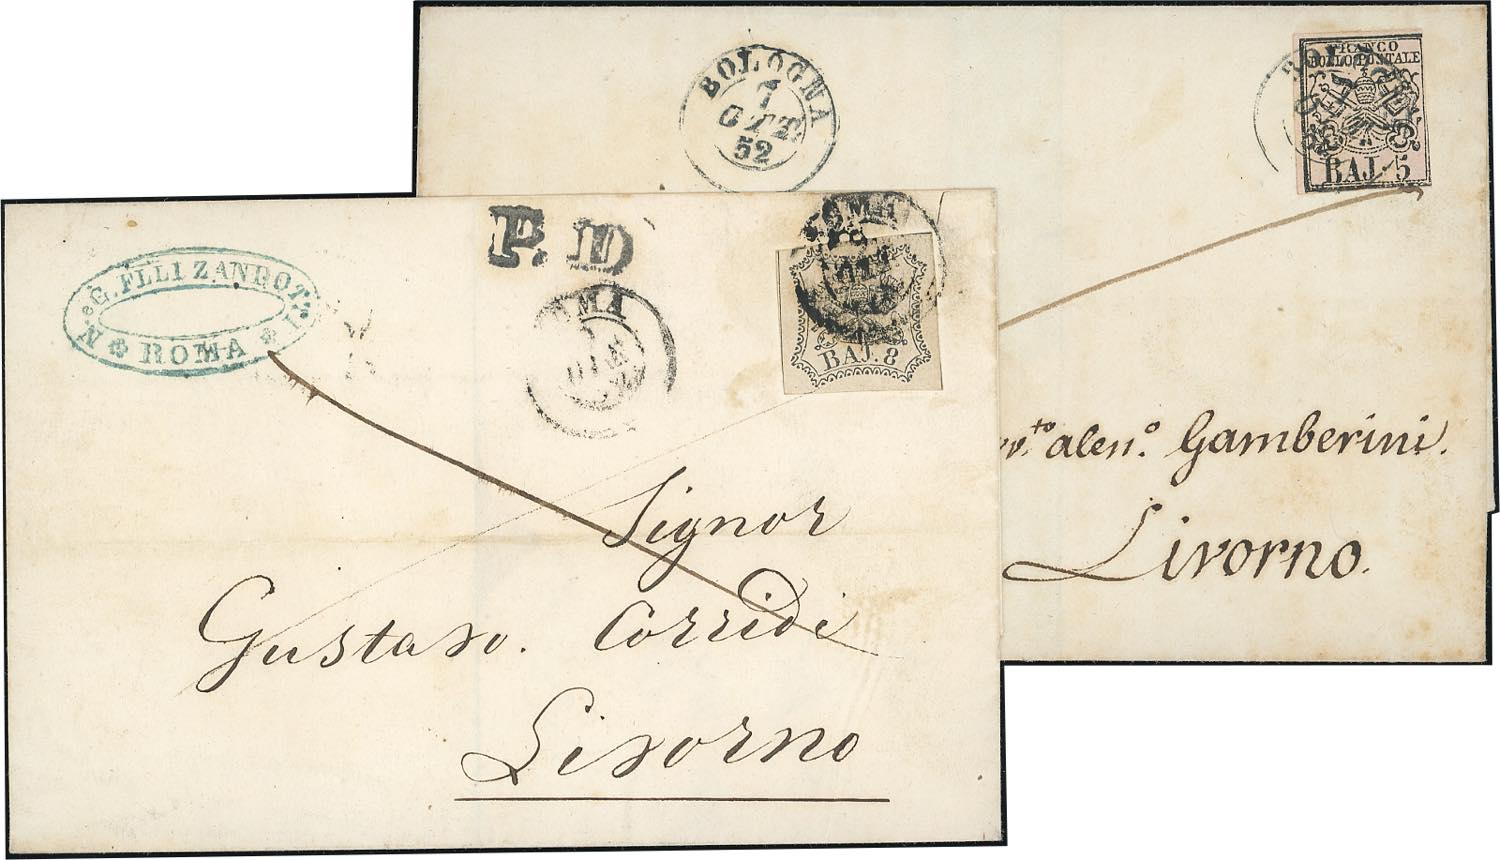 BOLOGNA
7
OTT
52
FRANCO
BOLLO POSTALE
BAJ. 5
alen.º Gamberini.
Livorno.
G. FLLI ZANDOTTI
ROMA
P. D
ROMA
BAJ. 8
Signor
Gustavo. Corridi
Livorno